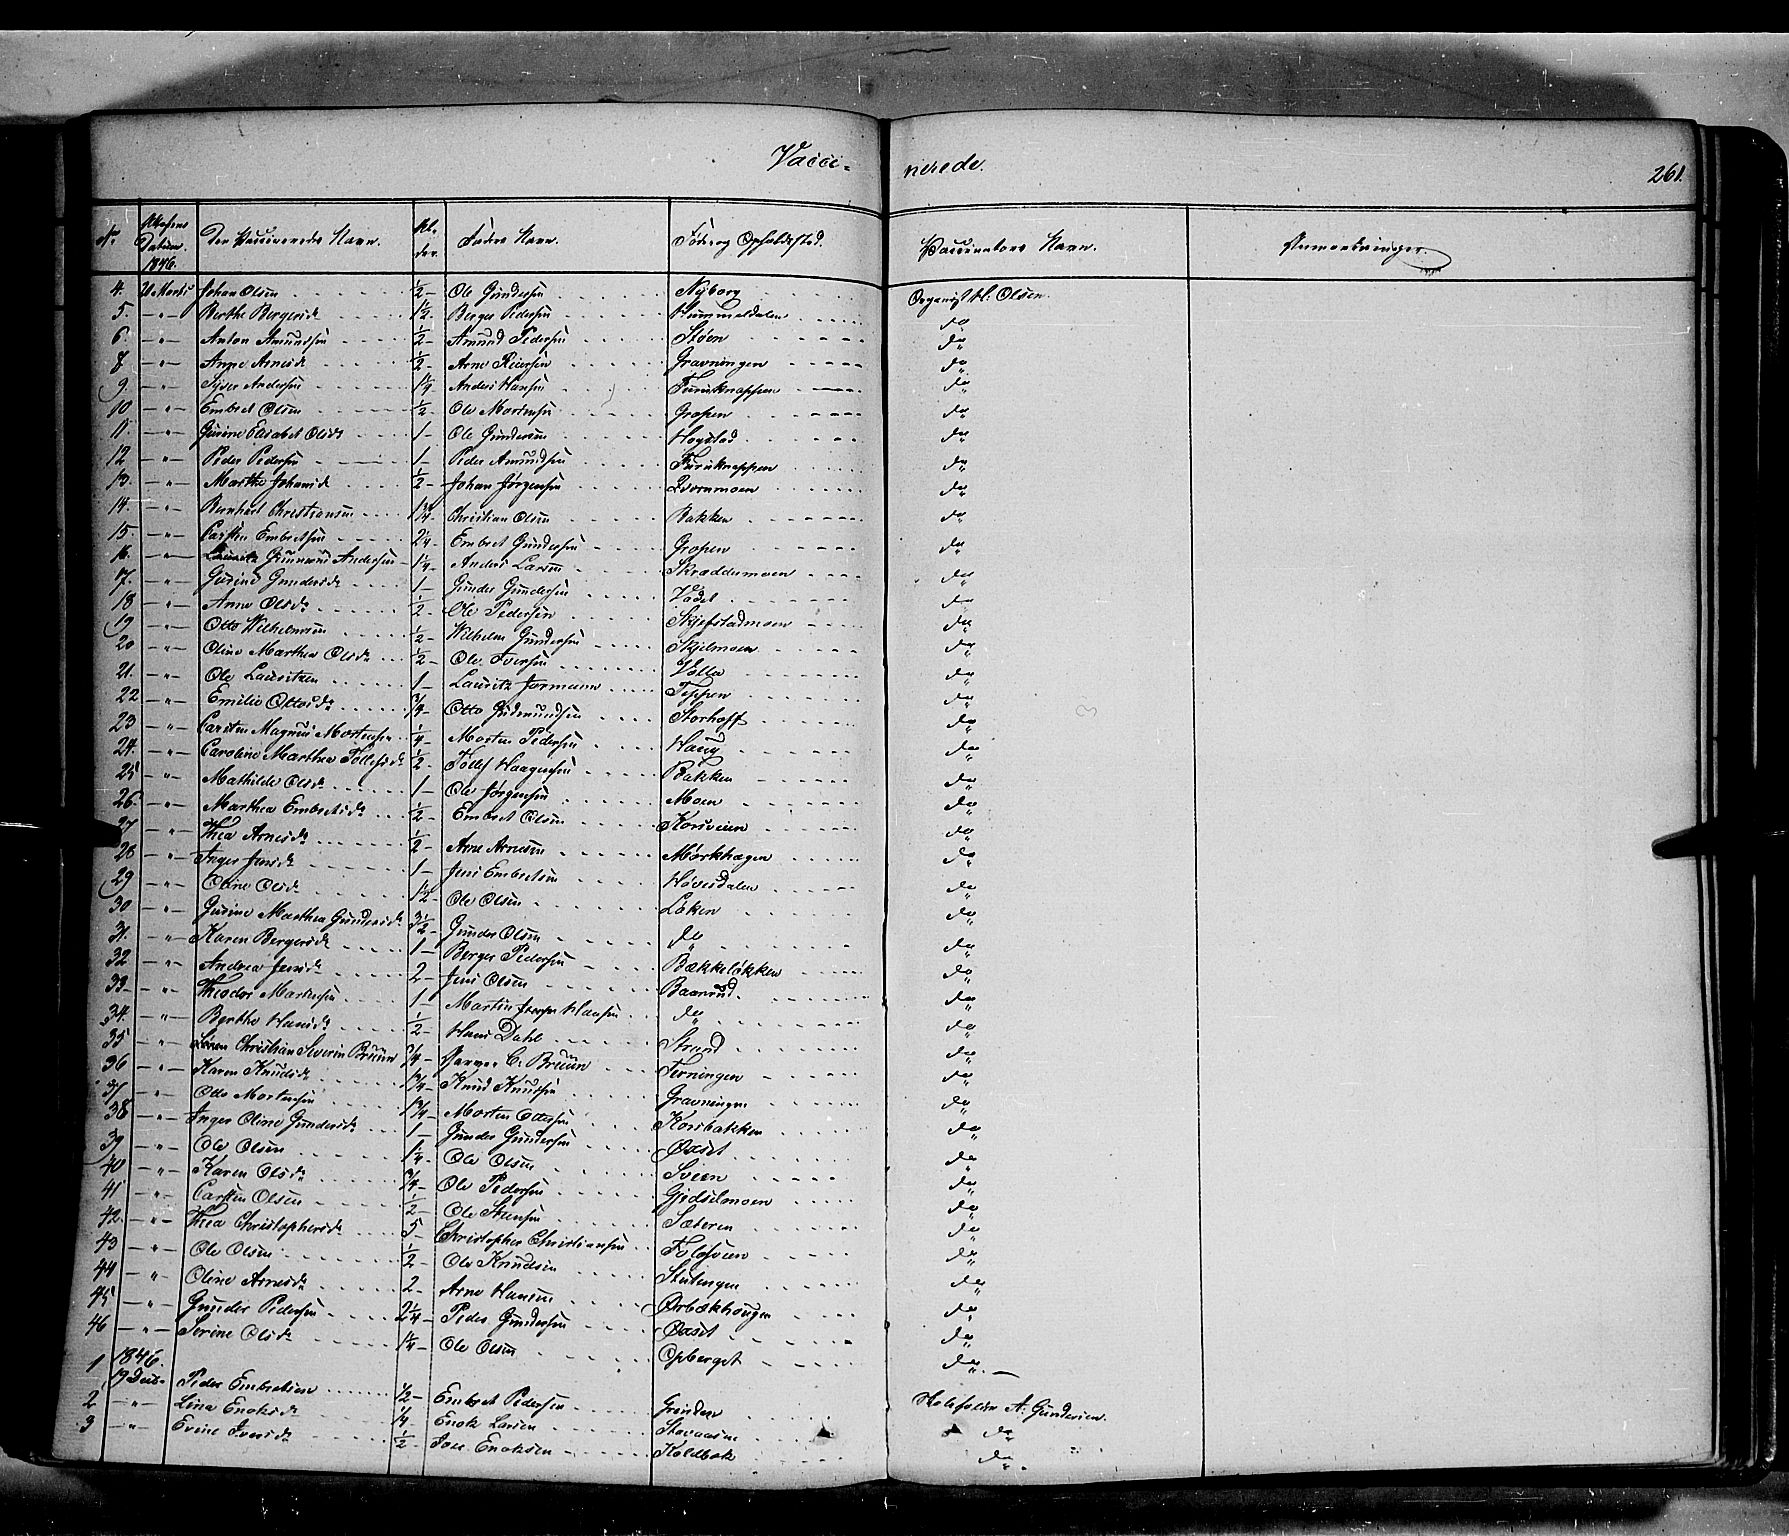 Vacci-nerede. 261.
No Datum 1846. Den Vaccineredes Navn. Alder. Faders Navn. Føde og Opholdssted. Vaccinators Navn. Anmærkninger.
4. Johan Olsen 1/2 - Ole Gundersen Nyborg Organist H: Olsen.
5. - " - Berthe Bergersd. 1 1/2 Berger Pedersen Hummeldalen do
6. - " - Anton Amundsen 1/2 - Amund Pedersen Støen do
8 - " - Anne Arnesd. 1/2 Arne Reiersen Gravningen do
9 - " - Andersen 1 1/4 Anders Hansen Furuknappen do
10 - " - Embret Olsen 1/2 - Ole Mortensen Gropen do
11. - " - Gurine Elisabet Olsd. 1 - Ole Gundersen Hogstad do
12 - " - Peder Pedersen 1 - Peder Amundsen Furuknappen do
13. - " - Marthe Johansd. 1/2 - Johan Jørgensen Qvernmoen do
14. - " - Bernhart Christiansen Christian Olsen Bakken do
15. - " - Carsten Embretsen 2 1/4 - Embret Gundersen Gropen do
16. - " - Andersen 1 1/4 - Anders Larsen Skræddermoen do
17. - " - Gurine Gundersd. 1 - Gunder Gundersen Vadet do
18 - " - Anne Olsd. 1/2 - Ole Pedersen Skjefstadmoen do
19 - " - Otto Wilhelmsen 1/2 - Wilhelm Gundersen Skjelmoen do
20 - " - Oline Marthea Olsd. 1/2 - Ole Iversen Volla do
21. - " - Ole Lauritzen 1 - Lauritz Jormann Teppen do
22 - " - Emilie Ottosd. 3/4 Otto Gudmundsen Storhoff do
23 - " - Carsten Magnus Mortensen 1/4 - Morten Pedersen Haug do
24. - " - Caroline Marthea Tollefsd. 1/2 - Tollef Haagensen Bakken do
25 - " - Mathilde Olsd. 1 - Ole Jørgensen Moen do
26 - " - Marthea Embretsd. 1/2 - Embret Olsen Korsveien do
27 - " - Thea Arnesd. 1/2 - Arne Arnesen Mørkhagen do
28 - " - Inger Jensd. 1 - Jens Embretsen Hovesdalen do
29 - " - Oline Olsd. 1 1/2 - Ole Olsen Løken do
30 - " - Gurine Marthea Gundersd. 3 1/2 - Gunder Olsen do do
31. - " - Karen Bergersd. 1 - Berger Pedersen Bækkeløkken do
32 - " - Andrea Jensd. 2 - Jens Olsen Baarud. do
33 - " - Theodor Martinsen 1 - Martin Hansen do do
34. - " - Berthe Hansd. 1/2 - Hans Dahl Strand do
35 - " - Søren Christian Severin Bruun 3/4 - C: Bruun Terningen do
36 - " - Karen Knudsd. 3/4 - Knud Knudsen Gravningen do
37 - " - Otto Mortensen 1 3/4 - Morten Ottersen Korsbakken do
38 - " - Inger Oline Gundersd. 1 - Gunder Gundersen Øxset do
39 - " - Ole Olsen 1 1/4 - Ole Olsen Sveen do
40 - " - Karen Olsd. 3/4 - Ole Pedersen Gjedselmoen do
41 - " - Carsten Olsen 1/2 - Ole Steensen Sæteren do
42. - " - Thea Christophersd. 5 - Christopher Christiansen do
43 - " - Ole Olsen 1/2 - Ole Knudsen Stutengen do
44 - " - Oline Arnesd. 2 - Arne Hansen Ørbækhougen do
45 - " - Gunder Pedersen 2 1/4 - Peder Gundersen Øxset do
46 - " - Serine Olsd. 1 1/4 - Ole Olsen Opberget do
1846.
1 Peder Embretsen 1/2 - Embret Pedersen Grinden A: Gundersen.
2 - " - Lina Enoksd. 1/4 - Enok Larsen Stavaasen do
3 - " - Evine Iversd. 1/2 - Enoksen Koldbæk do